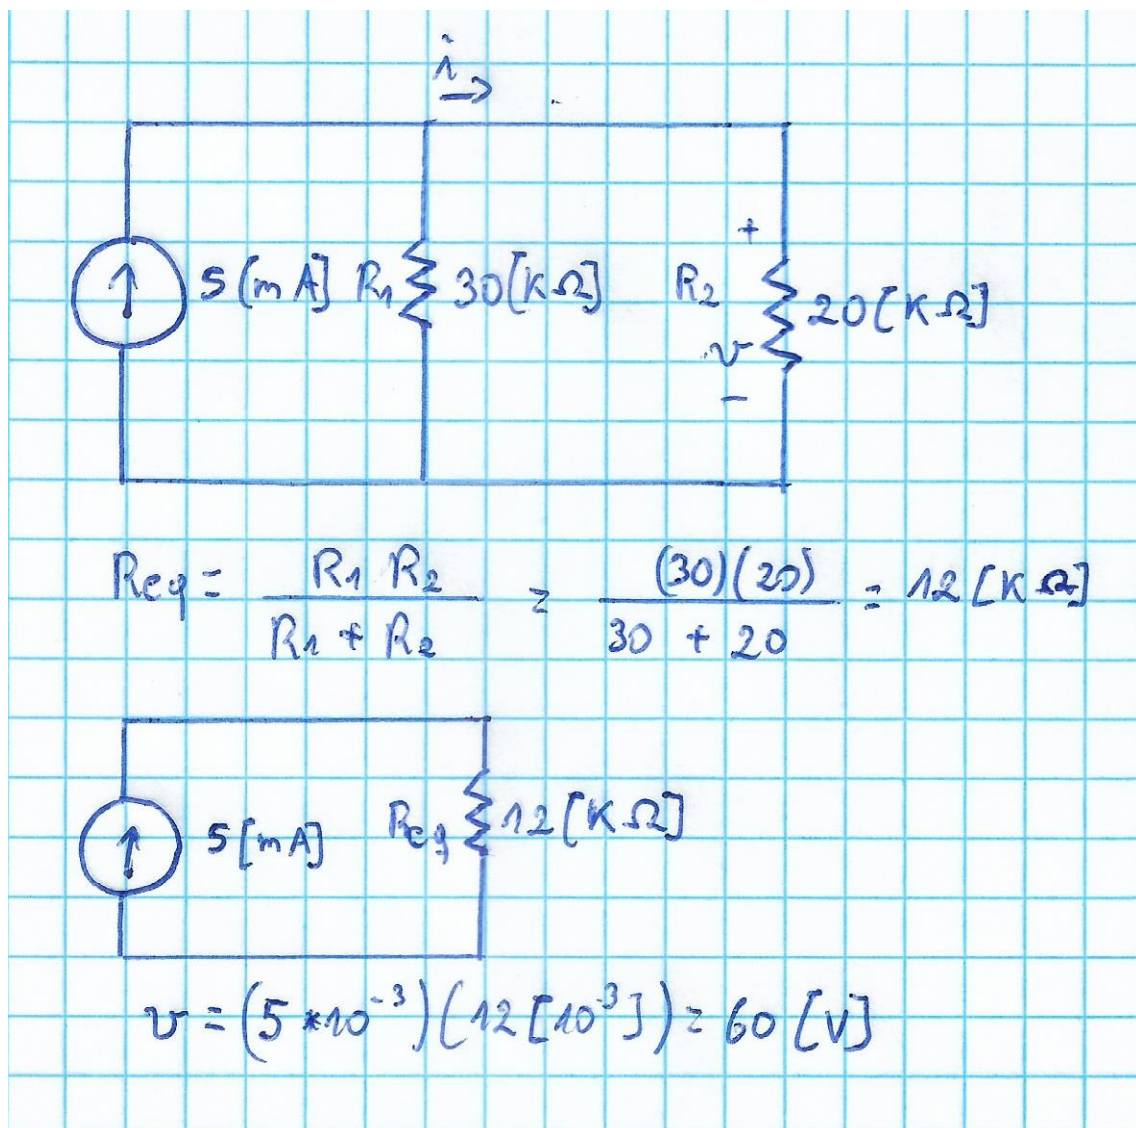 i →
5 [mA] R1 30 [KΩ] R2 + v − 20 [KΩ]
Req = R1 R2 / R1 + R2 = (30)(20) / 30 + 20 = 12 [KΩ]
5 [mA] Req 12 [KΩ]
v = (5 *10^-3)(12 [10^3]) = 60 [V]